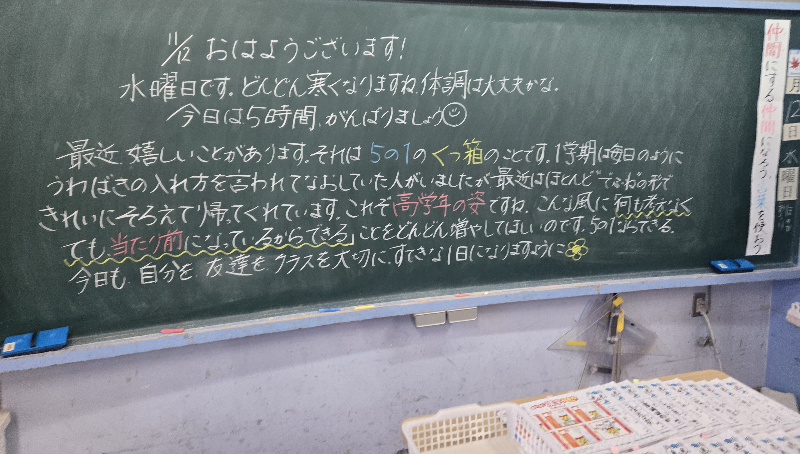 11/12 おはようございます!
水曜日です。どんどん寒くなりますね。体調は大丈夫かな。
今日は5時間、がんばりましょう
最近、嬉しいことがあります。それは 5の1の くつ箱のことです。1学期は毎日のように
うわばきの入れ方を言われてなおしていた人がいましたが、最近はほとんど の形で
きれいにそろえて帰ってくれています。これぞ高学年の姿ですね。こんな風に何も考えなく
ても当たり前になっているからできる」ことをどんどん増やしてほしいのです。5の1ならできる。
今日も、自分を、友達を、クラスを大切に、すてきな1日になりますように
仲間にする 仲間になろう 言葉を使おう
月
12
日
水
曜
日